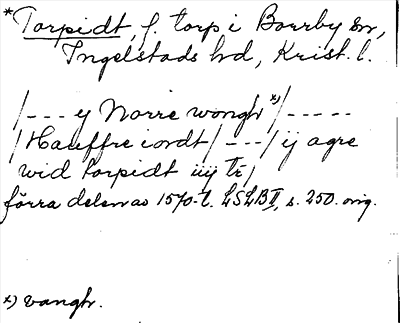 *Torpidt, f. torp i Borrby sn,
Ingelstads hd, Krist. l.
/--- ej Norre wongh x)/-----
/Hauffre iordt/---/ ij agre
wid torpidt iiij te/
förra delen av 1570-t. LSLB II, s. 250. orig.
x) vangh.